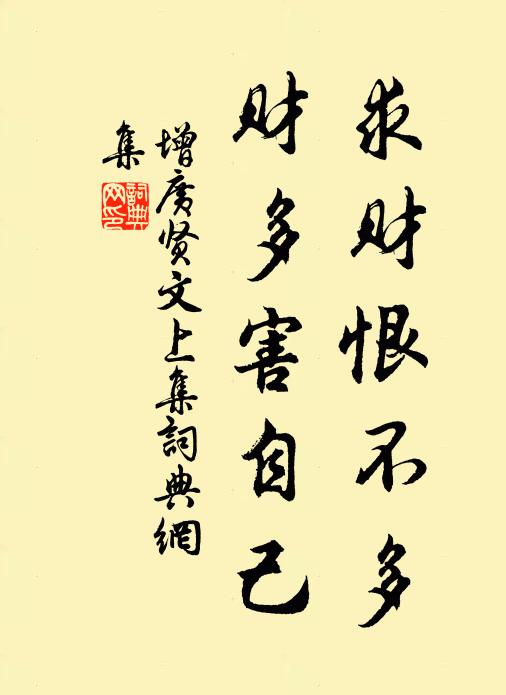 求财恨不多
财多害自己
增广贤文上集詞典網
集
詞典
网印